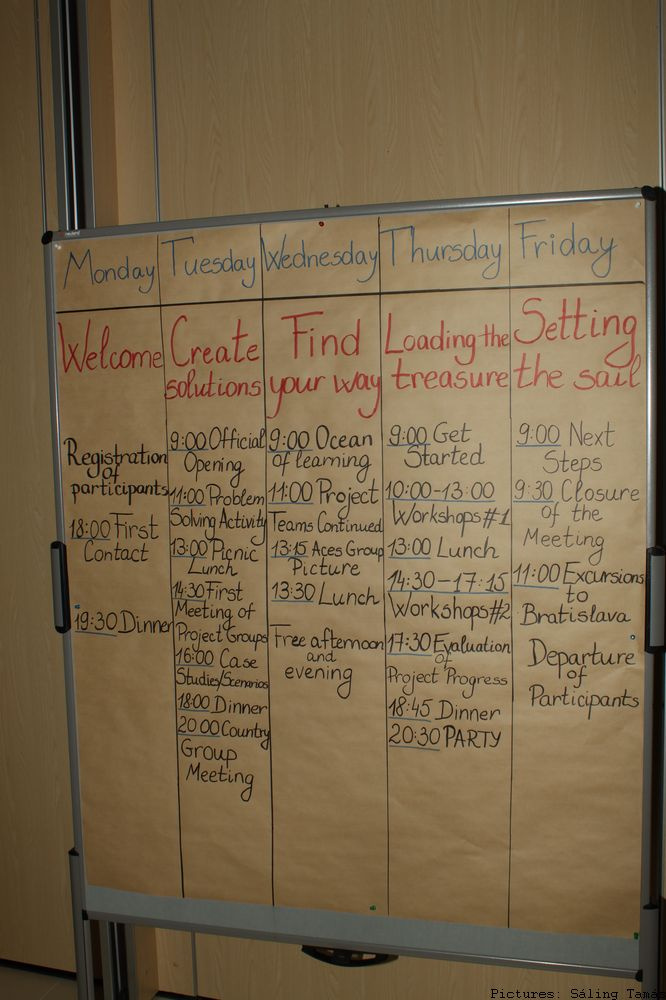 Monday
Welcome
Registration
of
participants
18:00 First
Contact
19:30 Dinner
Tuesday
Create
solutions
9:00 Official
Opening
11:00 Problem
Solving Activity
13:00 Picnic
Lunch
14:30 First
Meeting of
Project Groups
16:00 Case
Studies/Scenarios
18:00 Dinner
20 00 Country
Group
Meeting
Wednesday
Find
your way
9:00 Ocean
of learning
11:00 Project
Teams Continued
13:15 Aces Group
Picture
13:30 Lunch
Free afternoon
and
evening
Thursday
Loading the
treasure
9:00 Get
Started
10:00-13:00
Workshops #1
13:00 Lunch
14:30-17:15
Workshops #2
17:30 Evaluation
of
Project Progress
18:45 Dinner
20:30 PARTY
Friday
Setting
the sail
9:00 Next
Steps
9:30 Closure
of the
Meeting
11:00 Excursions
to
Bratislava
Departure
of
Participants
Pictures: Sáling Tamás